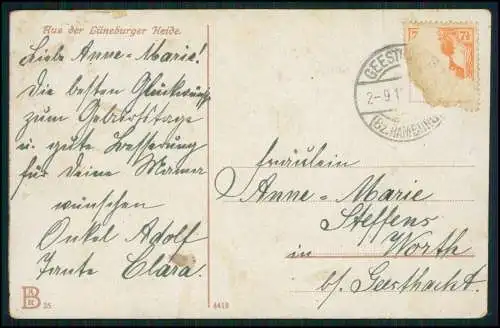 Aus der Lüneburger Heide.
Liebe Anne-Marie!
Die besten Glückwünsche
zum Geburtstage
u. gute Besserung
für Deine Mama
wünschen
Onkel Adolf
Tante Clara.
7½
GEEST
2-9.1
(BZ. HAMBURG)
Fräulein
Anne-Marie
Steffens
in Worth
b/ Geesthacht.
35
4419